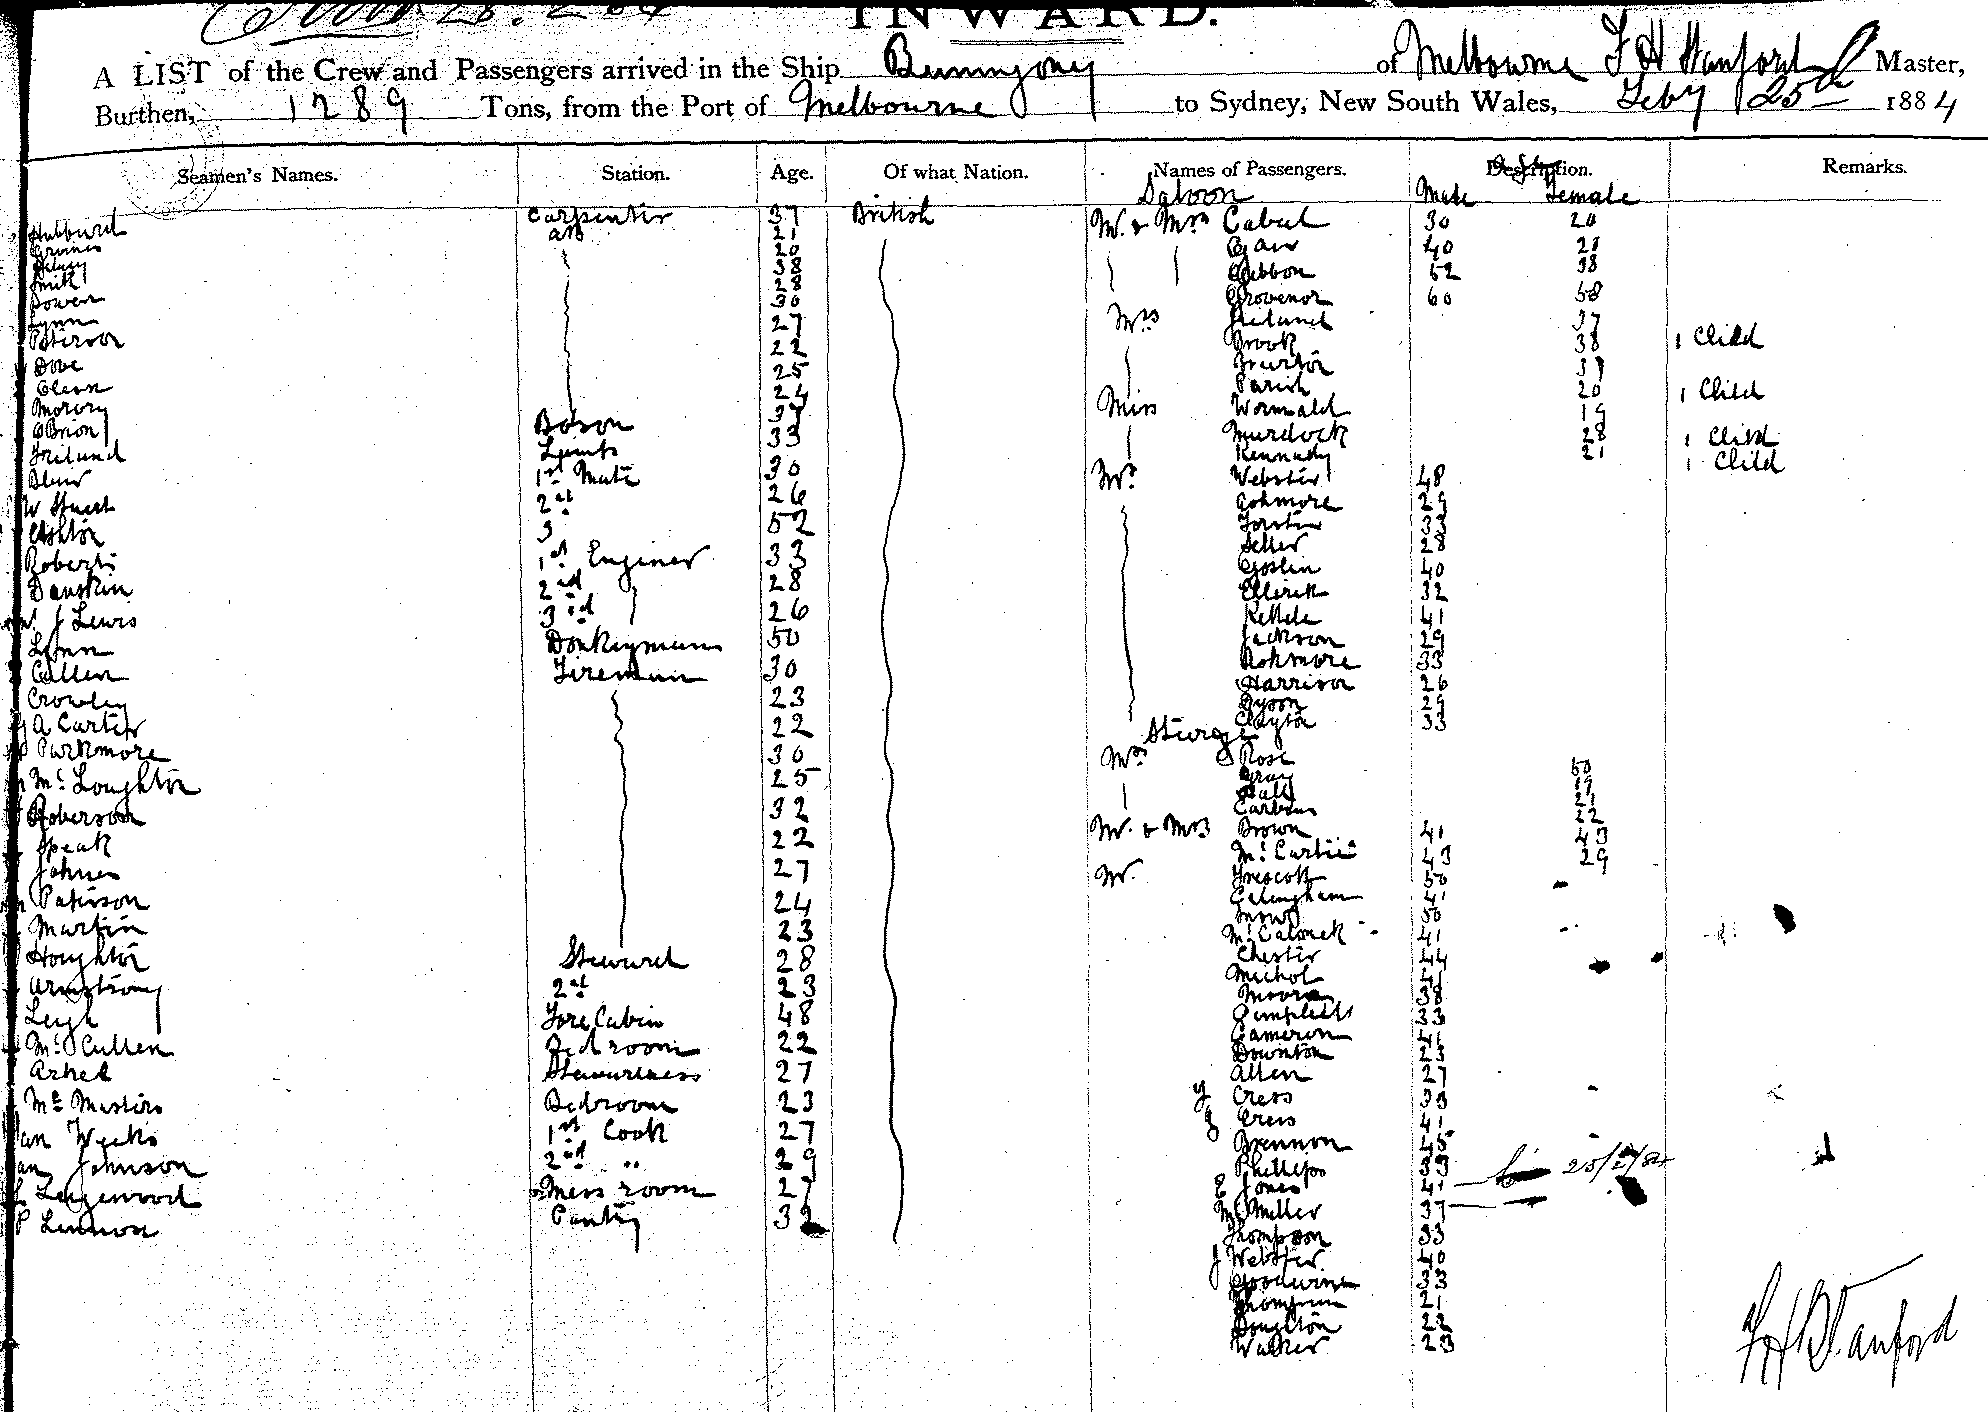 INWARD.
A LIST of the Crew and Passengers arrived in the Ship Buninyong of Melbourne F H Stanford Master,
Burthen, 1289 Tons, from the Port of Melbourne to Sydney, New South Wales, Feby 25th 1884
Seamen's Names. Station. Age. Of what Nation. Names of Passengers. Description. Remarks.
Saloon Male Female
Hubburd Carpenter 37 British Mr. & Mrs Cabul 30 20
AB 21 Gaw 40 28
20 Gibbon 52 38
Smith 38 Grovenor 60 58
Power 28 Mrs Ireland 37
Lynn 30 Brook 38 1 Child
Paterson 27 Brurton 39
Dove 22 Parish 20 1 Child
Glenn 25 Miss Wormald 19
Morory 24 Murdock 28 1 Child
O'Brion Boson 34 Kennedy 21 1 Child
Ireland Lamps 33 Mr. Webster 48
Blair 1st Mate 30 Ashmore 29
W Stuart 2nd 26 Forster 33
Ashton 3 52 Seller 28
Roberts 1st Enginer 33 Goslin 40
Danskin 2nd 28 Ellirik 32
J Lewis 3rd 26 Kettele 41
Lynn Donkeyman 50 Jackson 29
Cullen Fireman 30 Rohmore 33
Crowley 23 Harrison 26
A Carter 22 Dyson 29
Parkmore 30 Clayton 33
Sturge
McLoughton 25 Mrs Rose 50
Roberson 32 Gray 19
Speak 22 Hall 21
Johnes 27 Carbins 22
Patirson 24 Mr. & Mrs Brown 41 43
Martin 23 McCartie 43 29
Houghton Steward 28 Mr. Trescott 50
Armstrong 2nd 23 Gillingham 41
Leigh Fore Cabin 48 Snow 50
McCullen Bedroom 22 McCalonek 41
Arhel Stewardess 27 Chester 44
Mc Masters Bedroom 23 Michol 41
Weeks 1st Cook 27 Moore 38
Johnson 2nd " 29 Pimplett 33
Ledgewood Mess room 27 Cameron 41
P Lennon Pantry 32 Downton 23
Allen 27
Y Cress 33
J Cress 41
Brennon 45
Phillips 33 25/2/84
E Jones 41
McMiller 37
Thompson 33
J Webster 40
Goodwine 33
Thompson 21
Doughton 22
Walker 23
F H Stanford